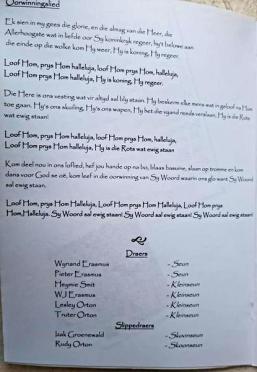 Oorwinningslied
Ek sien in my gees die glorie, en die almag van die Heer, die
Allerhoogste wat in liefde oor Sy koninkryk regeer, hy't belowe aan
die einde op die wolke kom Hy weer, Hy is koning, Hy regeer.
Loof Hom, prys Hom halleluja, loof Hom prys Hom, halleluja,
Loof Hom prys Hom halleluja, Hy is koning, Hy regeer.
Die Here is ons vesting wat vir altyd sal bly staan. Hy beskerm elke mens wat in geloof na Hom
toe gaan. Hy's ons skuiling, Hy's ons wapen, Hy het die vyand reeds verslaan, Hy is die Rots
wat ewig staan!
Loof Hom, prys Hom halleluja, loof Hom prys Hom, halleluja,
Loof Hom prys Hom halleluja, Hy is die Rots wat ewig staan
Kom deel nou in ons loflied, hef jou hande op na bo, blaas basuine, slaan op tromme en kom
dans voor God se oë, kom leef in die oorwinning van Sy Woord waarin ons glo want Sy Woord
sal ewig staan.
Loof Hom, prys Hom halleluja, Loof Hom prys Hom Halleluja, Loof Hom prys
Hom, Halleluja. Sy Woord sal ewig staan! Sy Woord sal ewig staan! Sy Woord sal ewig staan!
Draers
Wynand Erasmus - Seun
Pieter Erasmus - Seun
Heynie Smit - Kleinseun
W.J Erasmus - Kleinseun
Lesley Orton - Kleinseun
Truter Orton - Kleinseun
Slippedraers
Izak Groenewald - Skoonseun
Rudy Orton - Skoonseun